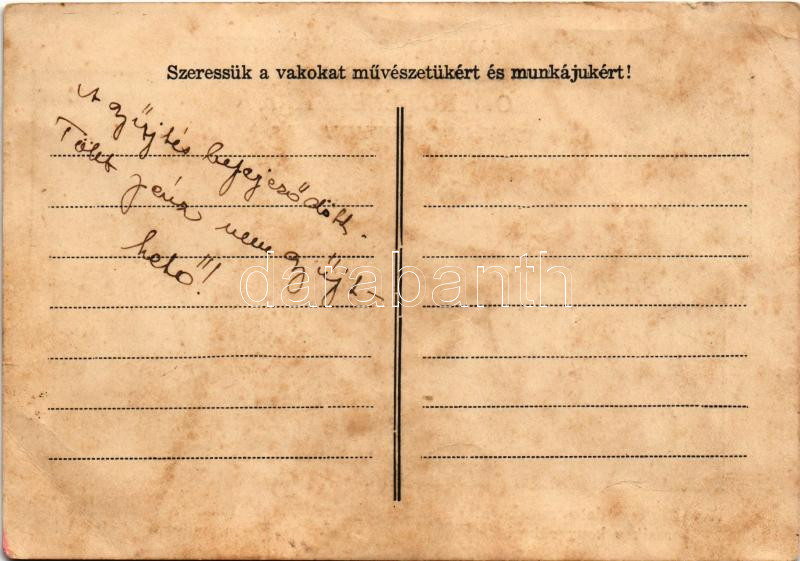 Szeressük a vakokat művészetükért és munkájukért!
A gyűjtés befejeződött.
Több pénz nem gyűjt-
hető!!!
darabanth